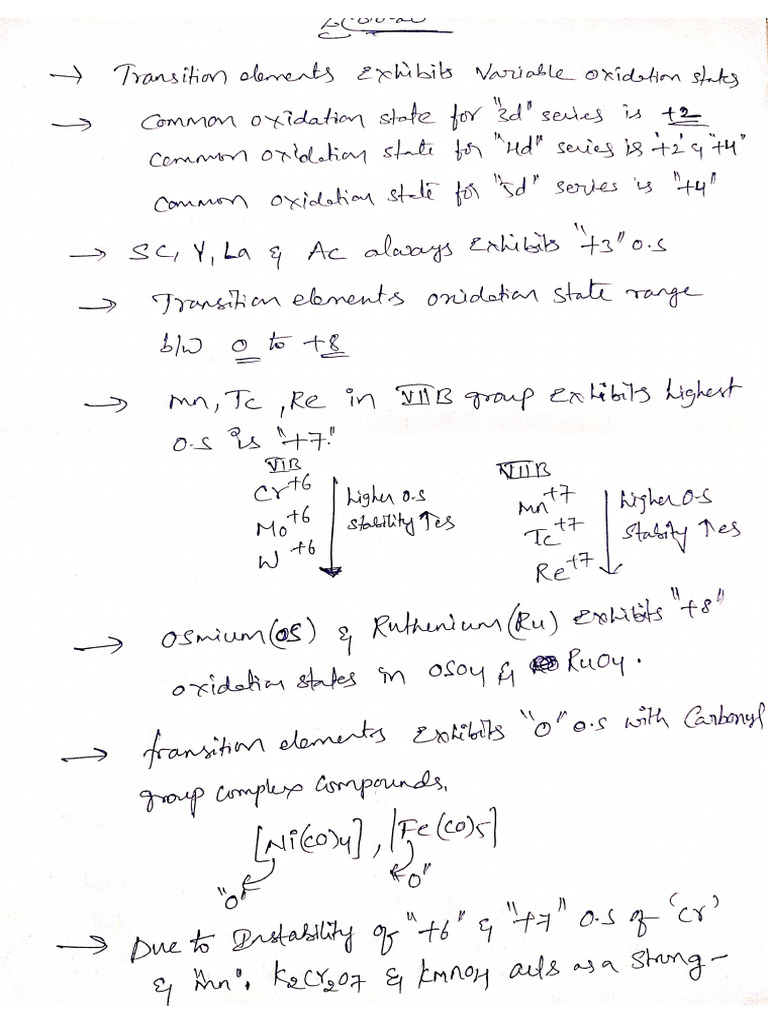 → Transition elements exhibits variable oxidation states
→ Common oxidation state for "3d" series is +2
Common oxidation state for "4d" series is '+2' & "+4"
Common oxidation state for "5d" series is "+4"
→ SC, Y, La & Ac always exhibits "+3" o.s
→ Transition elements oxidation state range
b/w 0 to +8
→ Mn, Tc, Re in VIIB group exhibits highest
o.s is "+7."
VIB
Cr+6
Mo+6
W+6
higher o.s
stability ↑es
VIIB
Mn+7
Tc+7
Re+7
higher o.s
stabity ↑es
→ Osmium(OS) & Ruthenium(Ru) exhibits "+8"
oxidation states in OSO4 & RuO4.
→ transition elements exhibits "0" o.s with Carbonyl
group complex compounds.
[Ni(CO)4], [Fe(CO)5]
"0" "0"
→ Due to Instability of "+6" & "+7" O.S of 'Cr'
& Mn". K2Cr2O7 & KMnO4 acts as a strong -